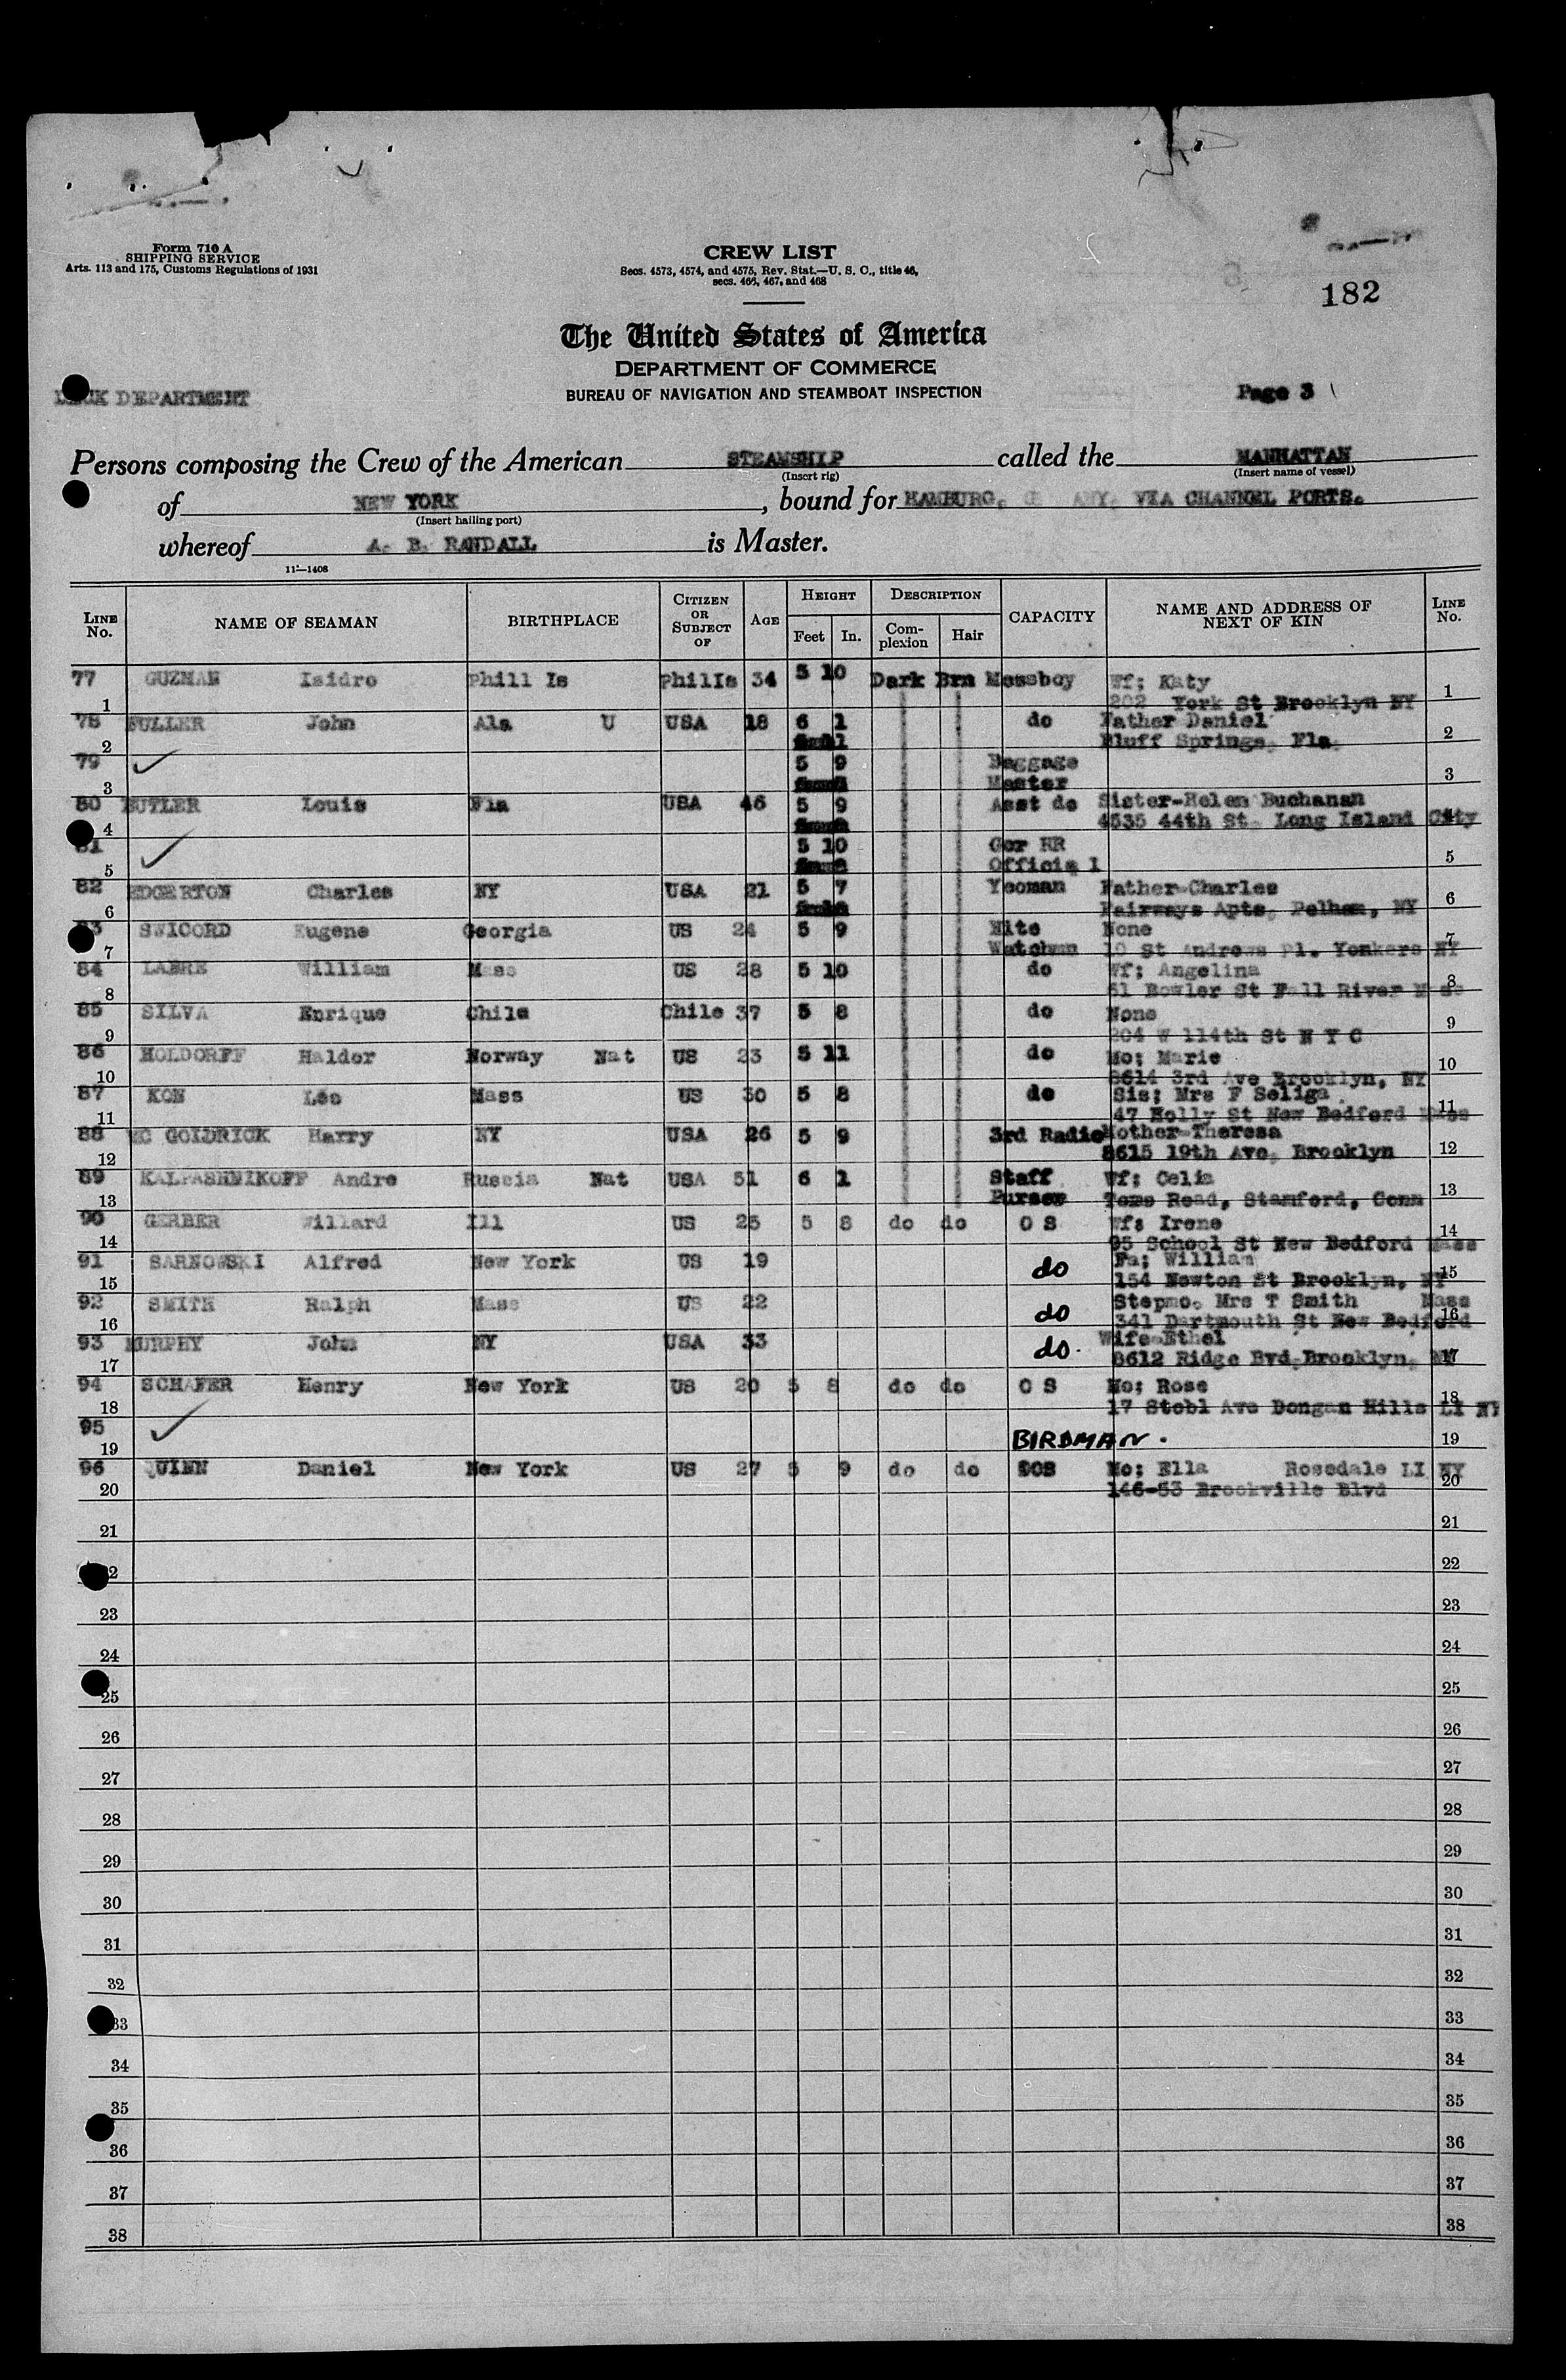 Form 710 A
SHIPPING SERVICE
Arts. 113 and 175, Customs Regulations of 1931
CREW LIST
Secs. 4573, 4574, and 4575, Rev. Stat.—U. S. C., title 46,
secs. 465, 467, and 468
182
The United States of America
DEPARTMENT OF COMMERCE
BUREAU OF NAVIGATION AND STEAMBOAT INSPECTION
DEPARTMENT
Page 3
Persons composing the Crew of the American STEAMSHIP called the MANHATTAN
(Insert rig) (Insert name of vessel)
of NEW YORK, bound for HAMBURG, VIA CHANNEL PORTS.
(Insert hailing port)
whereof A. B. RANDALL is Master.
11—1408
LINE No. NAME OF SEAMAN BIRTHPLACE CITIZEN OR SUBJECT OF AGE HEIGHT Feet In. DESCRIPTION Complexion Hair CAPACITY NAME AND ADDRESS OF NEXT OF KIN LINE No.
77 GUZMAN Isidro Phill Is PhilIs 34 5 10 Dark Brn Messboy Wf; Katy
1 202 York St Brooklyn NY 1
78 FULLER John Ala U USA 18 6 1 do Father Daniel
2 Bluff Springs, Fla 2
79 5 9 Baggage
3 Master 3
80 BUTLER Louis Fla USA 46 5 9 Asst do Sister-Helen Buchanan
4 4535 44th St. Long Island City
81 5 10 Ger RR
5 Official 5
82 EDGERTON Charles NY USA 21 5 7 Yeoman Father-Charles
6 Fairways Apts, Pelham, NY 6
83 SWICORD Eugene Georgia US 24 5 9 Nite None
7 Watchmn 10 St Andrews Pl. Yonkers NY 7
84 LABRE William Mass US 28 5 10 do Wf; Angelina
8 61 Bowler St Fall River Mass 8
85 SILVA Enrique Chile Chile 37 5 8 do None
9 204 W 114th St N Y C 9
86 HOLDORFF Haldor Norway Nat US 23 5 11 do Mo; Marie
10 8614 3rd Ave Brooklyn, NY 10
87 KON Leo Mass US 30 5 8 do Sis; Mrs F Seliga
11 47 Holly St New Bedford Mass 11
88 MC GOLDRICK Harry NY USA 26 5 9 3rd Radio Mother-Theresa
12 8615 19th Ave, Brooklyn 12
89 KALPASHNIKOFF Andre Russia Nat USA 51 6 1 Staff Wf; Celia
13 Purser Toms Road, Stamford, Conn 13
90 GERBER Willard Ill US 25 5 8 do do O S Wf; Irene
14 95 School St New Bedford Mass 14
91 SARNOWSKI Alfred New York US 19 do Fa; William
15 154 Newton St Brooklyn, NY 15
92 SMITH Ralph Mass US 22 do Stepmo. Mrs T Smith Mass
16 341 Dartmouth St New Bedford 16
93 MURPHY John NY USA 33 do. Wife-Ethel
17 8612 Ridge Bvd, Brooklyn, NY 17
94 SCHAFER Henry New York US 20 5 8 do do O S Mo; Rose
18 17 Stobl Ave Dongan Hills LI NY 18
95
19 BIRDMAN. 19
96 QUINN Daniel New York US 27 5 9 do do Mo; Ella Rosedale LI NY
20 146-53 Brookville Blvd 20
21 21
22
23 23
24 24
25 25
26 26
27 27
28 28
29 29
30 30
31 31
32 32
33 33
34 34
35 35
36 36
37 37
38 38